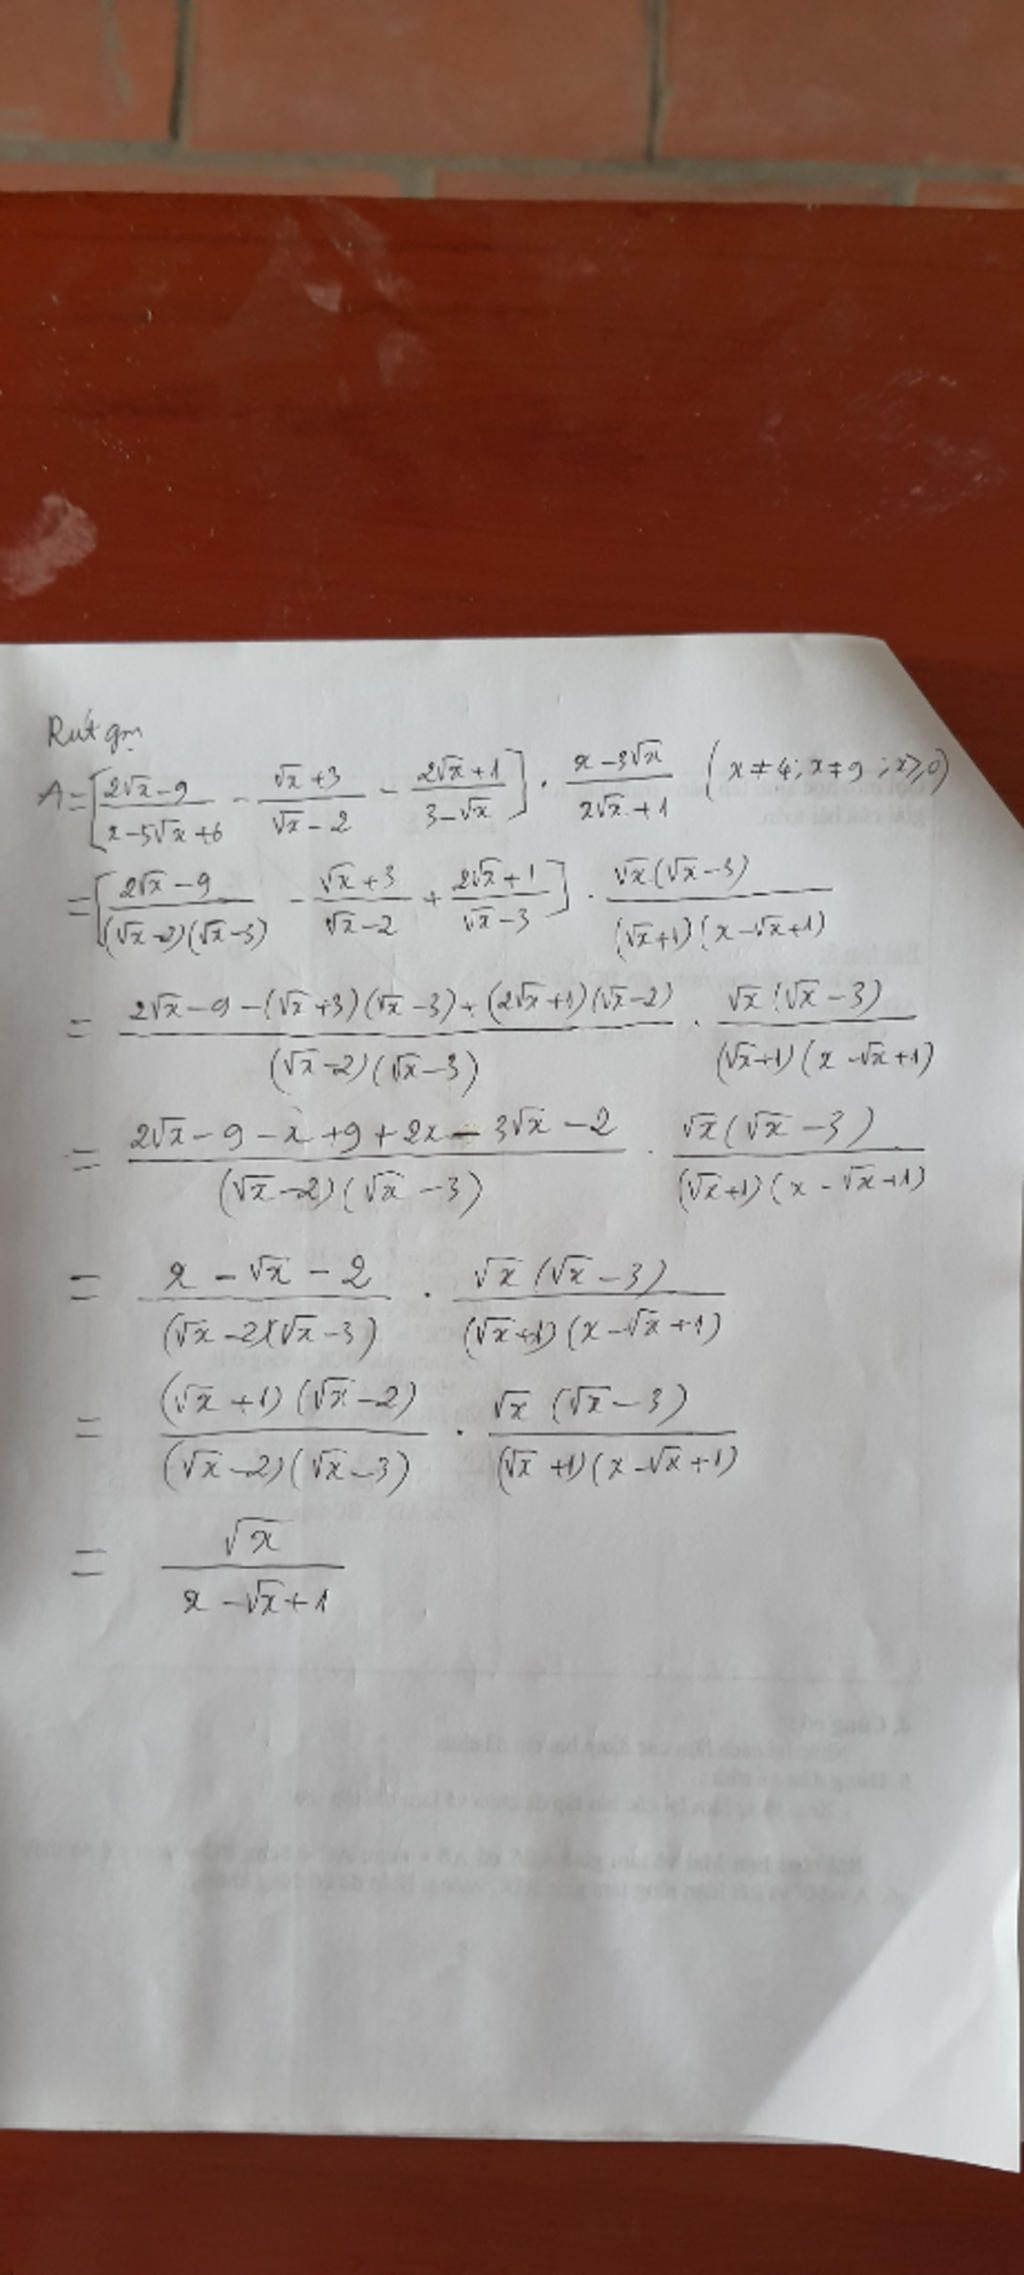 Rút gọn
A = [ (2√x - 9)/(x - 5√x + 6) - (√x + 3)/(√x - 2) - (2√x + 1)/(3 - √x) ] · (x - 3√x)/(x√x + 1) (x ≠ 4; x ≠ 9; x ≥ 0)
= [ (2√x - 9)/((√x - 2)(√x - 3)) - (√x + 3)/(√x - 2) + (2√x + 1)/(√x - 3) ] · √x(√x - 3)/((√x + 1)(x - √x + 1))
= (2√x - 9 - (√x + 3)(√x - 3) + (2√x + 1)(√x - 2))/((√x - 2)(√x - 3)) · √x(√x - 3)/((√x + 1)(x - √x + 1))
= (2√x - 9 - x + 9 + 2x - 3√x - 2)/((√x - 2)(√x - 3)) · √x(√x - 3)/((√x + 1)(x - √x + 1))
= (x - √x - 2)/((√x - 2)(√x - 3)) · √x(√x - 3)/((√x + 1)(x - √x + 1))
= (√x + 1)(√x - 2)/((√x - 2)(√x - 3)) · √x(√x - 3)/((√x + 1)(x - √x + 1))
= √x/(x - √x + 1)